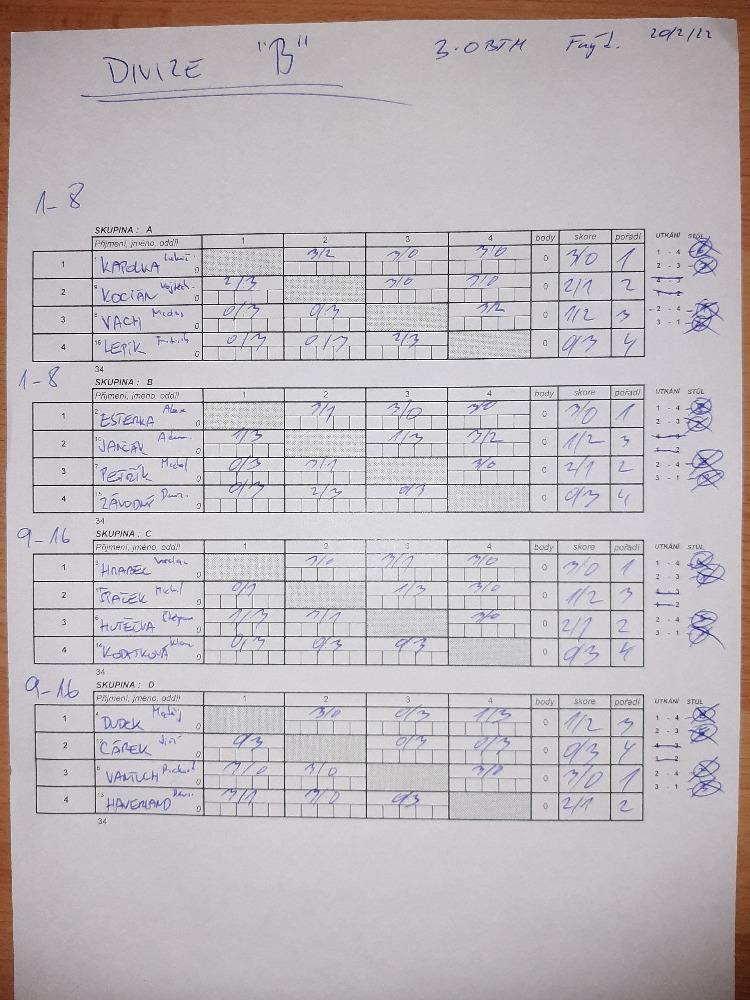 DIVIZE "B" 3. OBTM 20/2/22
1-8
SKUPINA : A
Příjmení, jméno, oddíl 1 2 3 4 body skore pořadí UTKÁNÍ STŮL
1 KAPOLKA Lukáš 0 3/2 3/0 3/0 0 3/0 1 1 - 4
2 KOCIÁN Vojtěch 0 2/3 3/0 3/0 0 2/1 2 2 - 3
3 VACH 0 0/3 0/3 3/2 0 1/2 3 2 - 4
4 LEPÍK 0 0/3 0/3 2/3 0 0/3 4 3 - 1
34
1-8
SKUPINA : B
Příjmení, jméno, oddíl 1 2 3 4 body skore pořadí UTKÁNÍ STŮL
1 ESTERKA Alex 0 3/1 3/0 3/0 0 3/0 1 1 - 4
2 JANČÁK Adam 0 1/3 1/3 3/2 0 1/2 3 2 - 3
3 PETŘÍK Michal 0 0/3 3/1 3/0 0 2/1 2 2 - 4
4 ZÁVODNÝ 0 0/3 2/3 0/3 0 0/3 4 3 - 1
34
9-16
SKUPINA : C
Příjmení, jméno, oddíl 1 2 3 4 body skore pořadí UTKÁNÍ STŮL
1 HRABEC 0 3/0 3/1 3/0 0 3/0 1 1 - 4
2 Michal 0 1/3 3/0 0 1/2 3 2 - 3
3 HUTĚČKA Štěpán 0 1/3 3/1 3/0 0 2/1 2 2 - 4
4 KODATKOVÁ 0 0/3 0/3 0/3 0 0/3 4 3 - 1
34
9-16
SKUPINA : D
Příjmení, jméno, oddíl 1 2 3 4 body skore pořadí UTKÁNÍ STŮL
1 DUDEK Matěj 0 3/0 0/3 1/3 0 1/2 3 1 - 4
2 CÁREK Jiří 0 0/3 0/3 0/3 0 0/3 4 2 - 3
3 VANTUCH Richard 0 3/0 3/0 3/0 0 3/0 1 2 - 4
4 HAVERLAND 0 3/1 3/0 0/3 0 2/1 2 3 - 1
34